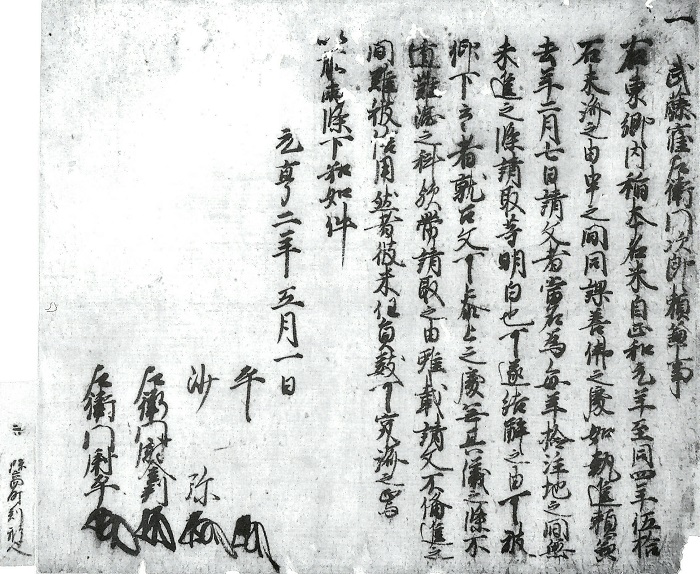 一
武藤窪左衛門次郎頼兼事
右東郷内稲本名米自正和元年至同四年伍拾
石未済之由申之間同課善佛之處如執進頼兼
去年二月七日請文者當名為毎年拾注地之間無
未進之條請取等明白也可遂結解之由可被
仰下云々者就請文可参上之處無其儀之條不
遁難渋之科欤帯請取之由雖載請文不備進之
間雖被信用然者彼未進員数可究済之焉
以前両條下知如件
元亨二年五月一日
平
沙弥
左衛門尉
左衛門尉平